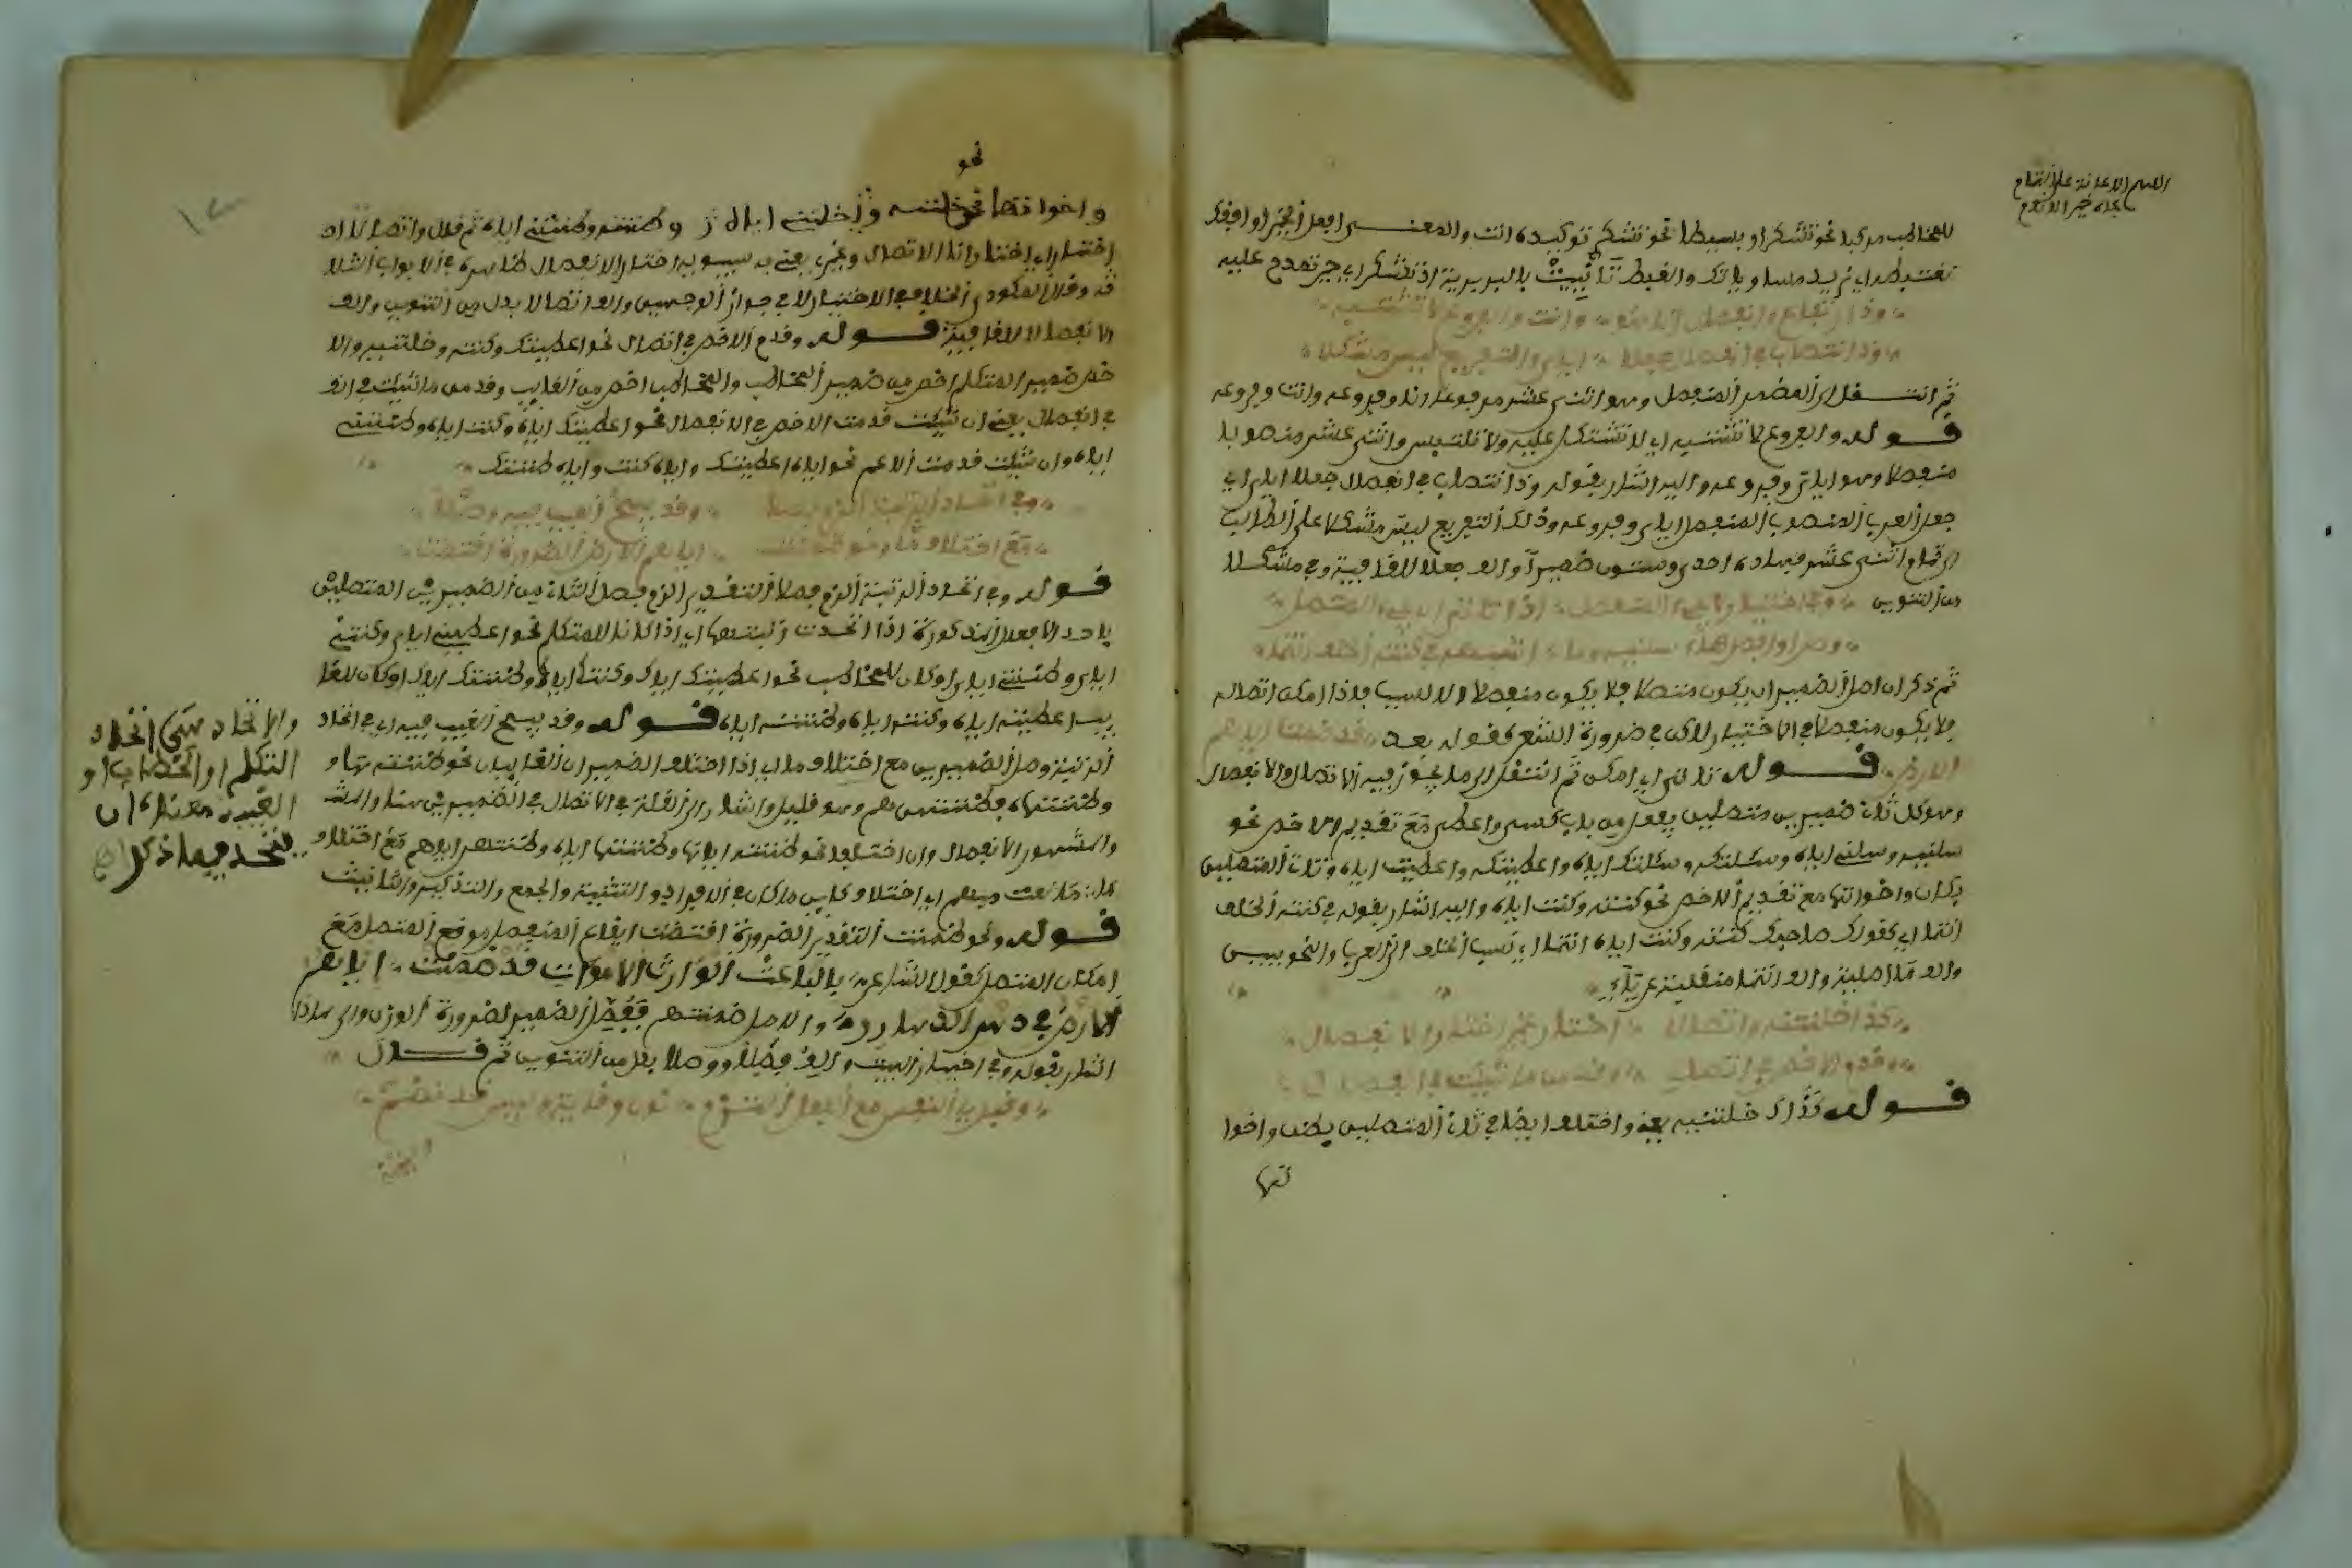 اللهم الاعانة على التمام
بجاه خير الانام
للمخاطب مركبا نحو تشكر او بسيطا نحو تشكر توكيده انت والمعنى افعل الخير اوافقك
نغتبط اي نريد مساوياتك والغبط بالبربرية اذ تشكر اي حين تمدح عليه
وذو ارتفاع وانفصال انا هو وانت والفروع لا تشتبه
وذو انتصاب في انفصال جعلا اياي والتفريع ليس مشكلا
ثم انتقل الى الضمير المنفصل وهو اثنى عشر مرفوعا انا وفروعه وانت وفروعه
قوله والفروع لا تشتبه اي لا تشتكل عليه ولا تلتبس واثنى عشر منصوبا
منفصلا وهو اياي وفروعه واليه اشار بقوله وذو انتصاب في انفصال جعلا اياي اي
جعل العرب المنصوب المنفصل اياي وفروعه وذلك التفريع ليس مشكلا على الطالب
اثنى عشر فهاده احدى وستون ضميرا والف جعلا للقافية وفي مشكلا
من التنوين وفي اختيار لا يجيء المنفصل اذا تاتى ان يجيء المتصل
وصل او افصل هاء سلنيه وما اشبهه في كنته الخلف انتما
ثم ذكر ان اصل الضمير ان يكون متصلا فلا يكون منفصلا الا لسبب فاذا امكن اتصاله
فلا يكون منفصلا في الاختيار لاكن في ضرورة الشعر كقوله بعد قد ضمنت اياهم
الارض قوله تاتى اي امكن ثم انتقل الى ما يجوز فيه الاتصال والانفصال
وهو كل ثاني ضميرين متصلين بفعل من باب كسى واعطى مع تقديم الاخص نحو
سلنيه وسلني اياه وسئلتكه وسئلتك اياه واعطيتكه واعطيتك اياه وثاني المتصلين
بكان واخواتها مع تقديم الاخص نحو كنته وكنت اياه واليه اشار بقوله في كنته الخلف
انتما اي كقولك صاحبك كنته وكنت اياه انتما اي نسب الخلف الى العرب والنحويين
والف ما اصلية والف انتما منقلبة عن ياء
كذاك خلتنيه واتصالا اختار غيري اختار الانفصالا
وقدم الاخص في اتصال وقدمن ما شئت في انفصال
قوله كذاك خلتنيه يعني واختلف ايضا في ثاني المتصلين بظن واخوا
تها
نحو
واخواتها نحو خلتنيه وخلتني اياه وظننته وظننتني اياه ثم قال واتصالا
اختار اي اختار انا الاتصال وغيري يعني به سيبويه اختار الانفصال
قد وقال المكودي الخلاف في الاختيار لا في جواز الوجهين والف اتصالا بدل من التنوين والف
الانفصالا للقافية قوله وقدم الاخص في اتصال نحو اعطيتك وكنته وخلتنيه والا
خص ضمير المتكلم اخص من ضمير المخاطب والمخاطب اخص من الغايب وقدمن ما شئت في انفـ
في انفصال يعني ان شئت قدمت الاخص في الانفصال نحو اعطيتك اياه وكنت اياه وظننتني
اياه وان شئت قدمت الاعم نحو اياه اعطيتك واياه كنت واياه ظننتك
وفي اتحاد الرتبة الزم فصلا وقد يبيح الغيب فيه وصلا
مع اختلاف ما ونحو ضمنت اياهم الارض الضرورة اقتضت
قوله وفي اتحاد الرتبة الزم فصلا التقدير الزم فصل الثاني من الضميرين المتصلين
باحد الافعال المذكورة اذا اتحدت رتبتهما اي اذا كانا للمتكلم نحو اعطيتني اياي وكنتني
اياي وظننتني اياي او كان للمخاطب نحو اعطيتك اياك وكنتك اياك وظننتك اياك او كان للغا
يب اعطيته اياه وكنته اياه وظننته اياه قوله وقد يبيح الغيب فيه اي في اتحاد
الرتبة وصل الضميرين مع اختلاف ما اي اذا اختلف الضميران الغايبان نحو ظننته
وهو قليل واشار الى القلة في الاتصال في الضميرين
والمشهور الانفصال وان اختلفا نحو ظننته اياها وظننتها اياه وظننتهم اياهم مع اختلاف
ما نعت مبهم اي اختلاف كاين ما كان في الافراد والتثنية والجمع والتذكير والتانيث
قوله ونحو ضمنت التقدير الضرورة اقتضت ايقاع المنفصل موقع المتصل مع
امكان المتصل كقول الشاعر بالباعث الوارث الاموات قد ضمنت اياهم
الارض في دهر الدهارير والاصل ضمنتهم ففصل الضمير لضرورة الوزن والى هاذا
اشار بقوله وفي اختيار البيت والف فصلا ووصلا بدل من التنوين ثم قال
وقبل يا النفس مع الفعل التزم نون وقاية وليسي قد نظم
والاتحاد يعني اتحاد
التكلم او الخطاب او
الغيبة معناه ان
يتحد فيما ذكر اه